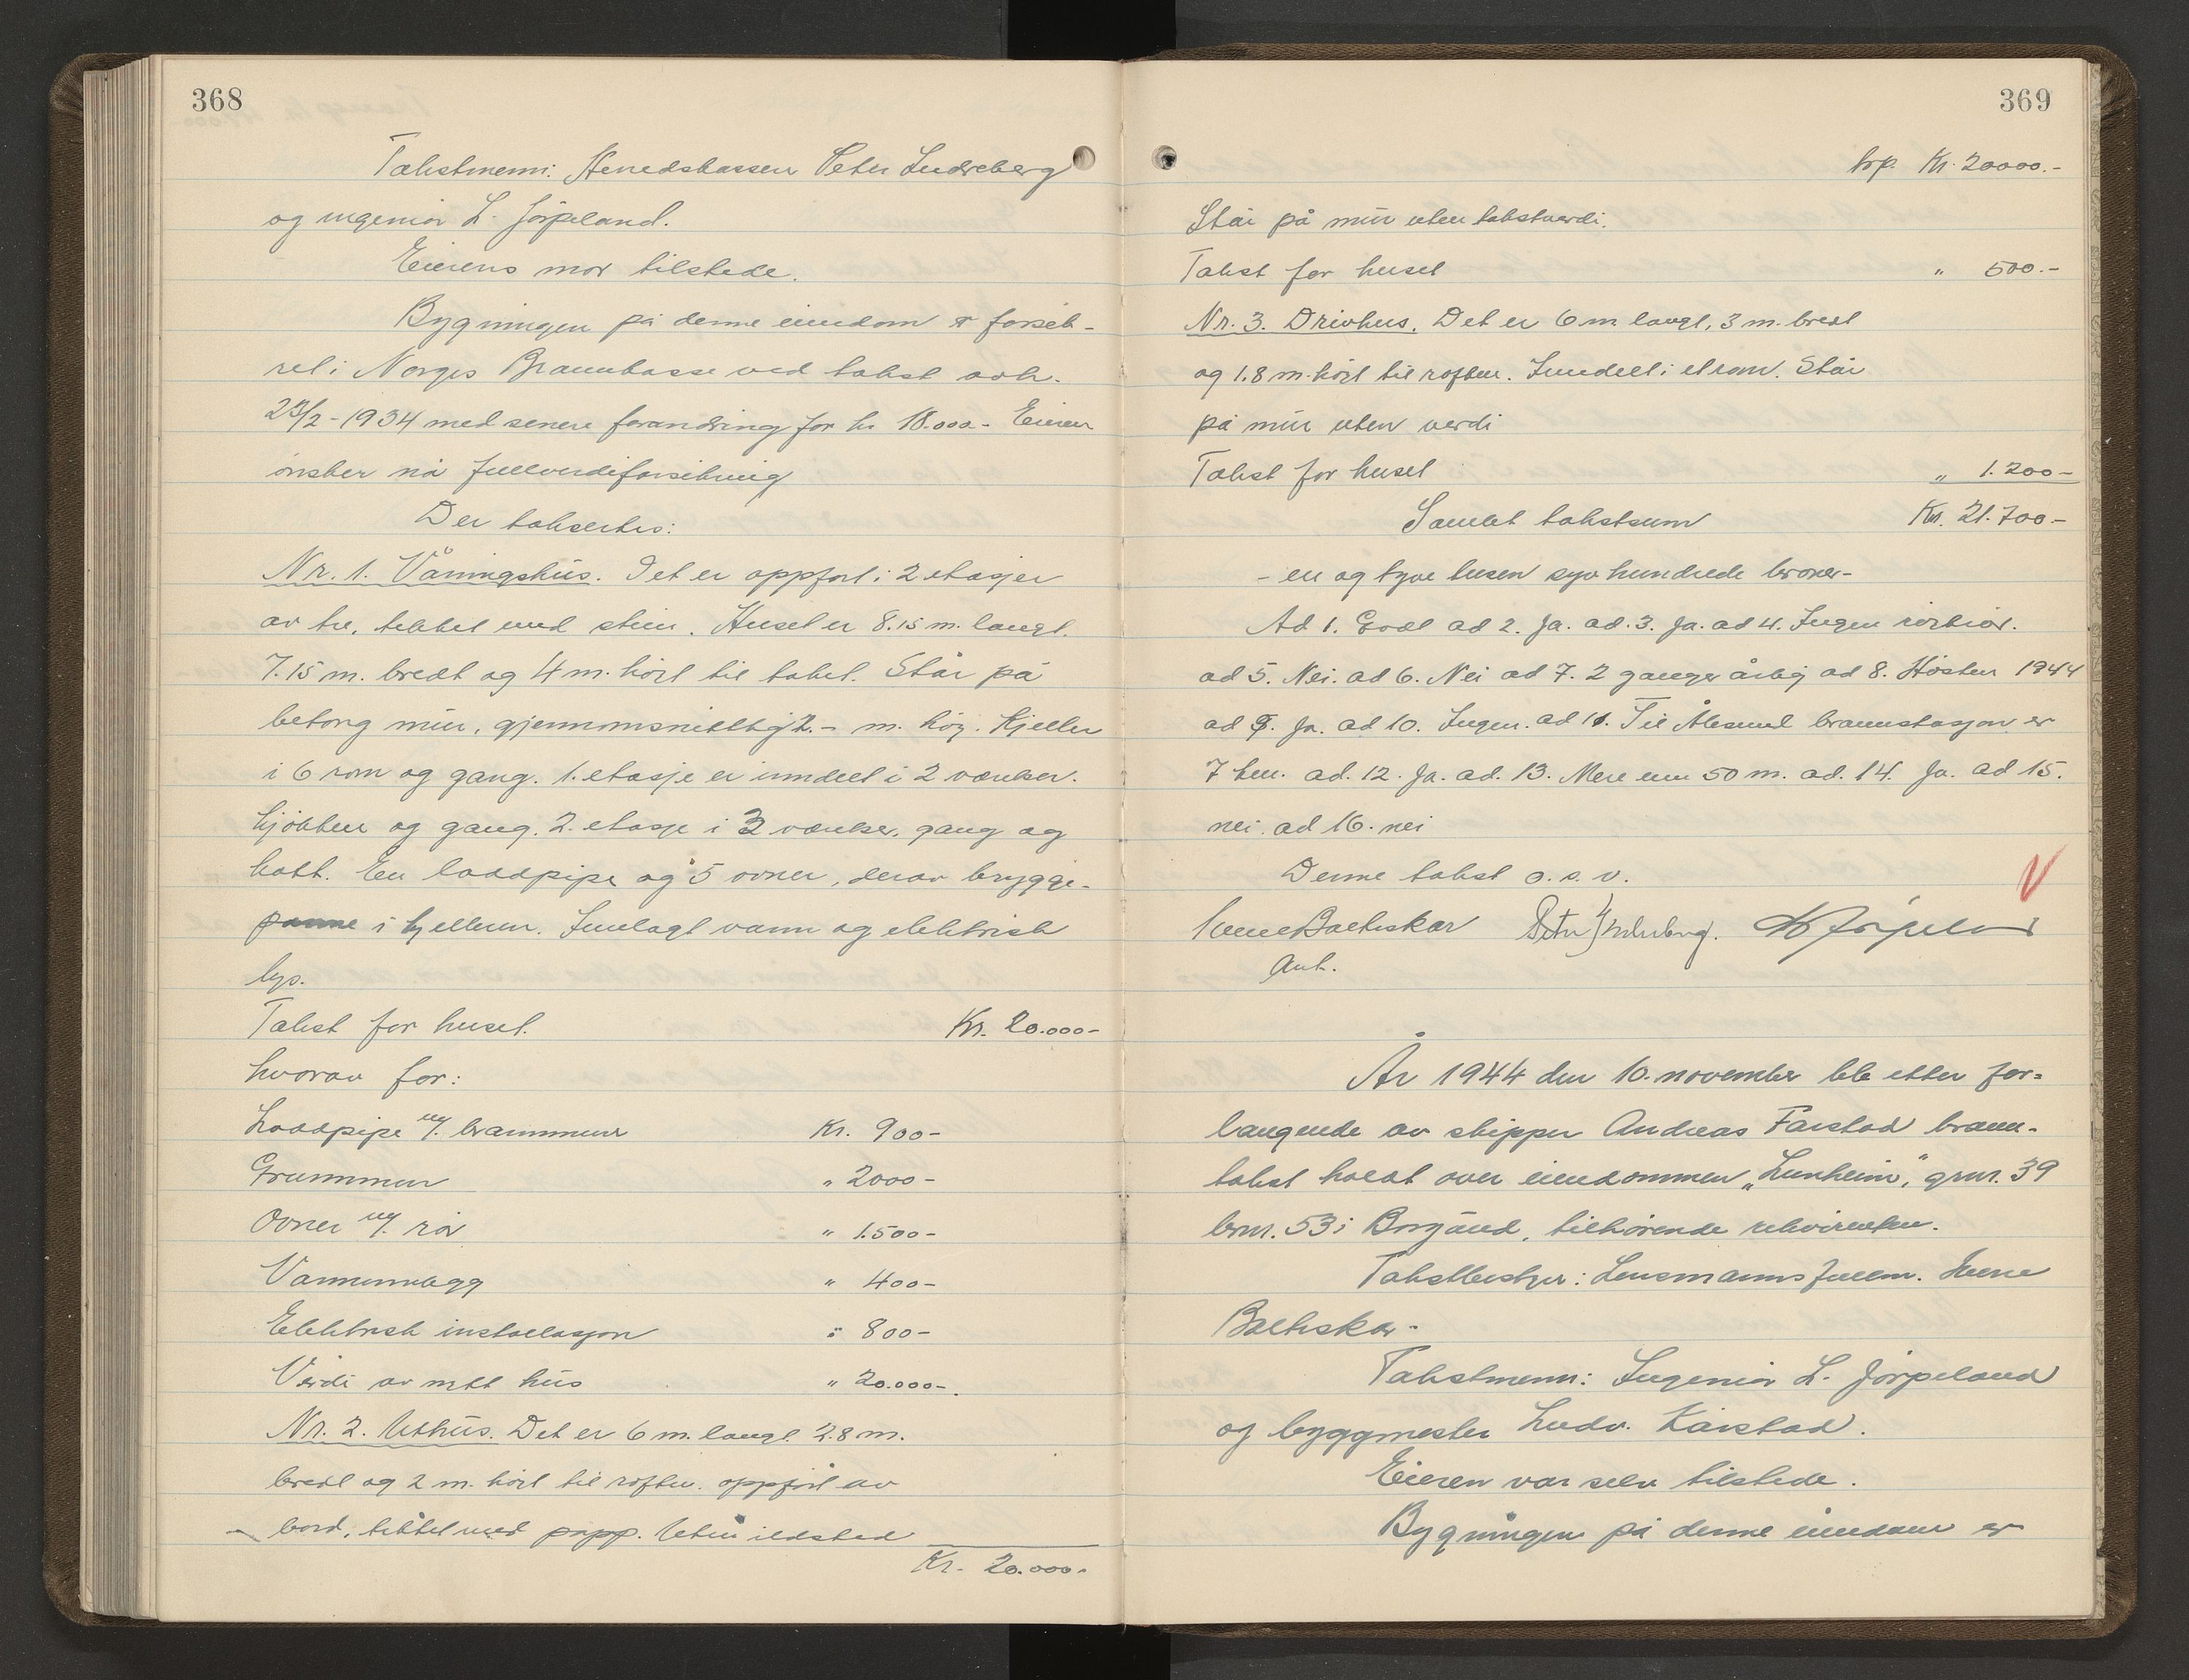 368
Takstmenn: Herredskasser Peter Indreberg
og ingeniør L. Jörpeland.
Eierens mor tilstede.
Bygningen på denne eiendom er forsik-
ret i Norges Brannkasse ved takst avh.
23/2-1934 med senere forandring for kr 18.000.- Eieren
önsker nå fullverdiforsikring
Der takseres:
Nr. 1. Våningshus. Det er oppfört i 2 etasjer
av tre, tekket med stein. Huset er 8.15 m. langt.
7.15 m. bredt og 4 m. höit til taket. Står på
betong mur, gjennomsnittligt 2.- m. höy. Kjeller
i 6 rom og gang. 1. etasje er inndelt i 2 værelser.
kjökken og gang. 2. etasje i 3 værelser, gang og
kott. En loddpipe og 5 ovner, derav brygge-
panne i kjelleren. Innlagt vann og elektrisk
lys.
Takst for huset. Kr. 20.000-
hvorav for:
Loddpipe m/. brannmur Kr. 900-
Grunnmur " 2000-
Ovner m/. rör " 1.500-
Vanninnlegg " 400-
Elektrisk installasjon " 800-
Verdi av nett hus " 20.000-.
Nr. 2. Uthus. Det er 6 m. langt 2.8 m.
bredt og 2 m. höit til röften. oppfört av
bord, tekket med papp. Uten ildsted
Kr. 20.000-
369
trp. Kr. 20000.-
Står på mur uten takstverdi.
Takst for huset " 500.-
Nr. 3. Drivhus. Det er 6 m. langt, 3 m. bredt
og 1.8 m. höit til röften. Inndelt i et rom. Står
på mur uten verdi
Takst for huset " 1.200-
Samlet takstsum Kr. 21.700-
- en og tyve tusen syv hundrede kroner-
Ad 1. Godt ad 2. Ja. ad. 3. Ja. ad 4. Ingen
ad 5. Nei. ad 6. Nei ad 7. 2 ganger årlig ad 8. Hösten 1944
ad 9. Ja. ad 10. Ingen. ad 11. Til Ålesund brannstasjon er
7 km. ad. 12. Ja. ad. 13. Mere enn 50 m. ad. 14. Ja. ad 15.
nei. ad 16. nei
Denne takst o.s.v.
Baekskar Peter Indreberg. L Jörpeland
Aut.
År 1944 den 10. november ble etter for-
langende av skipper Andreas Farstad brann-
takst holdt over eiendommen „Lunheim", gnr. 39
bnr. 53 i Borgund, tilhörende rekvirenten.
Takstbestyrer: Lensmannsfullm.
Baekskar-
Takstmenn: Ingeniör L. Jörpeland
og byggmester Ludv. Karstad.
Eieren var selv tilstede.
Bygningen på denne eiendom er